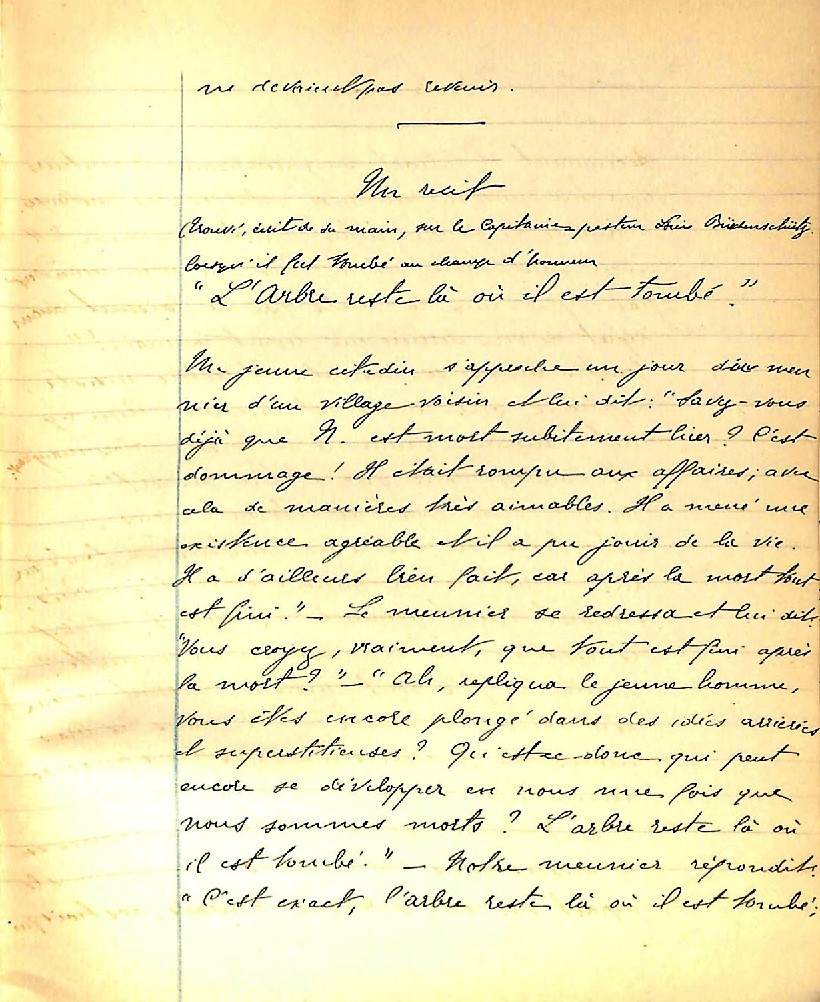 ne devraient pas revenir.
Un recit
(trouvé, écrit de sa main, sur le Capitaine-pasteur Louis
lorsqu'il fut tombé au champ d'honneur
"L'Arbre reste là où il est tombé."
Un jeune citadin s'approche un jour d'un meu
nier d'un village voisin et lui dit: "Savez-vous
déjà que N. est mort subitement hier? C'est
dommage! Il était rompu aux affaires; avec
cela de manières très aimables. Il a mené une
existence agréable et il a pu jouir de la vie.
Il a d'ailleurs bien fait, car après la mort tout
est fini." — Le meunier se redressa et lui dit:
"Vous croyez, vraiment, que tout est fini après
la mort?" — "Ah, repliqua le jeune homme,
vous êtes encore plongé dans des idées arriérées
et superstitieuses? Qu'est-ce donc qui peut
encore se développer en nous une fois que
nous sommes morts? L'arbre reste là où
il est tombé." — Notre meunier répondit:
"C'est exact, l'arbre reste là où il est tombé;